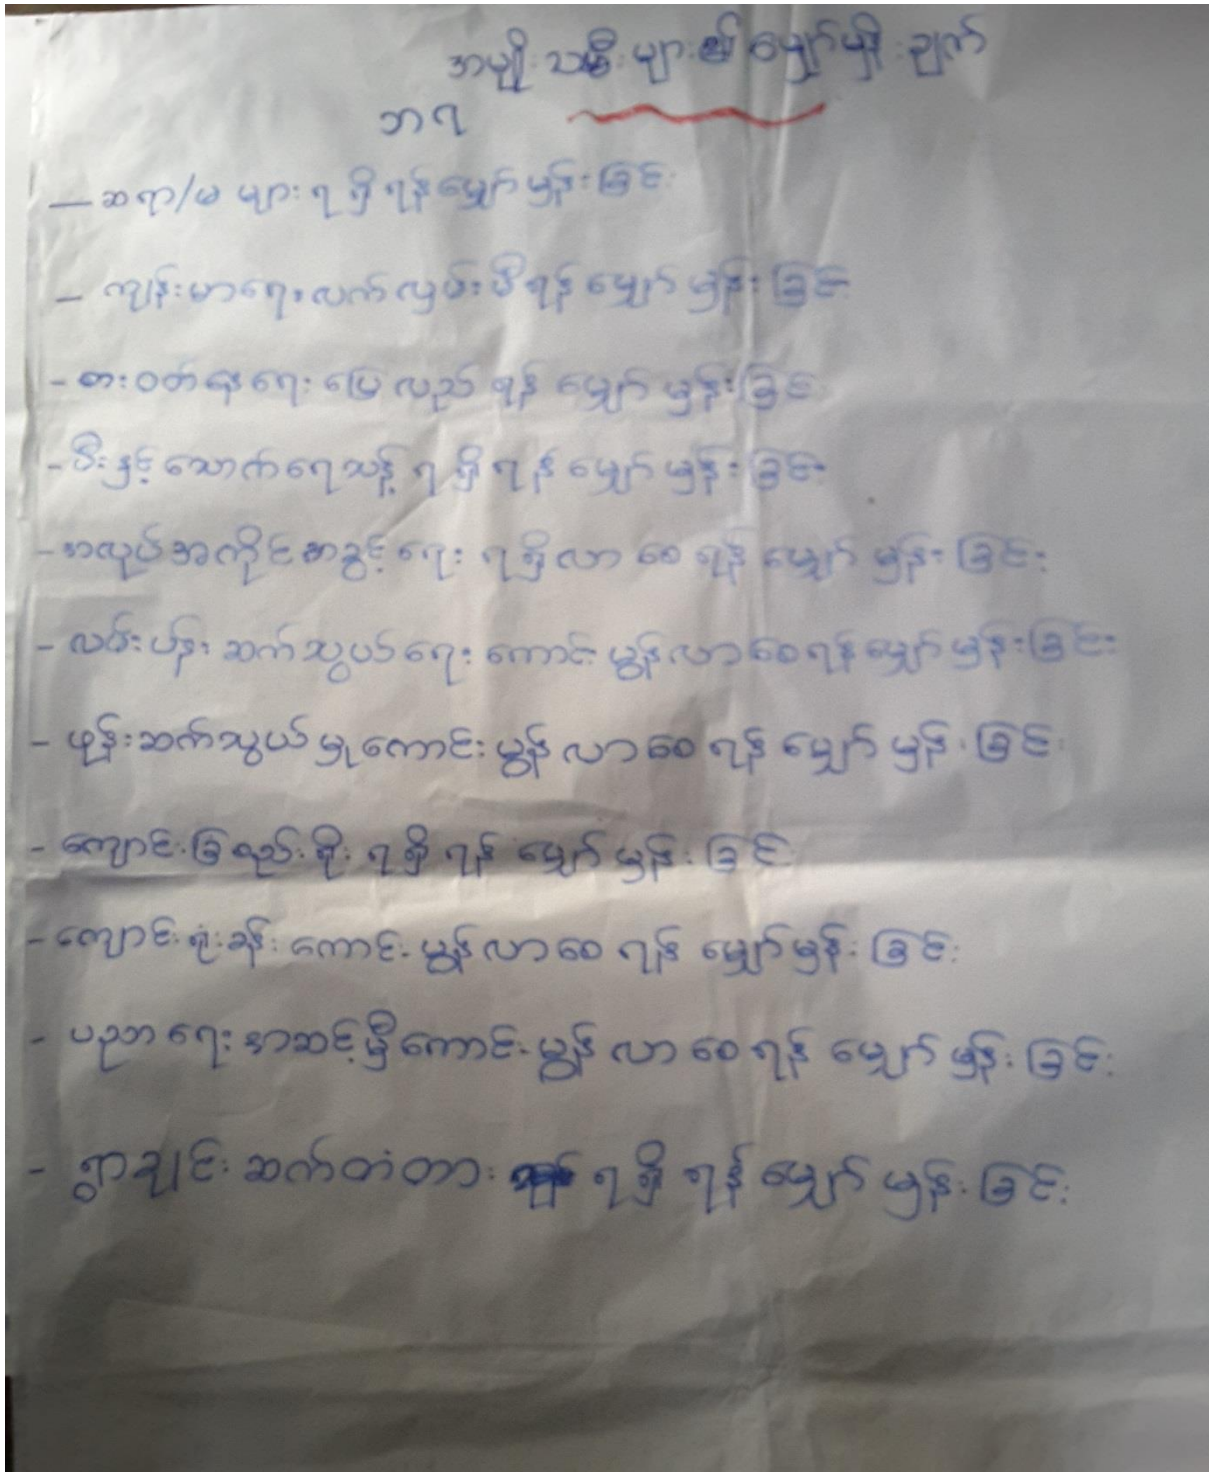 အမျိုးသမီးများ၏ မျှော်မှန်းချက်
ဘ၇
— ဆရာ/မ များ ရရှိရန် မျှော်မှန်းခြင်း
– ကျန်းမာရေး လက်လှမ်းမီရန် မျှော်မှန်းခြင်း
– စားဝတ်နေရေး ပြေလည်ရန် မျှော်မှန်းခြင်း
– မီးနှင့် သောက်ရေသန့် ရရှိရန် မျှော်မှန်းခြင်း
– အလုပ်အကိုင်အခွင့်ရေး ရရှိလာစေရန် မျှော်မှန်းခြင်း
– လမ်းပန်းဆက်သွယ်ရေး ကောင်းမွန်လာစေရန် မျှော်မှန်းခြင်း
– ဖုန်းဆက်သွယ်မှု ကောင်းမွန်လာစေရန် မျှော်မှန်းခြင်း
– ကျောင်းခြံစည်းရိုး ရရှိရန် မျှော်မှန်းခြင်း
– ကျောင်းရုံးခန်း ကောင်းမွန်လာစေရန် မျှော်မှန်းခြင်း
– ပညာရေးအဆင့်မှီကောင်းမွန်လာစေရန် မျှော်မှန်းခြင်း
– ရွာချင်းဆက်တံတား ရရှိရန် မျှော်မှန်းခြင်း